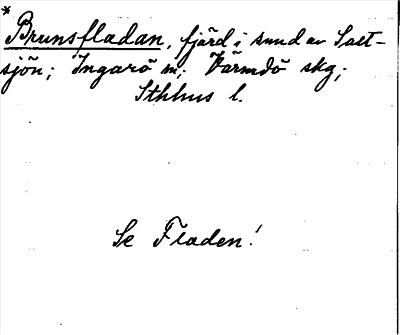 *
Brunsfladan, fjärd i sund av Salt-
sjön; Ingarö sn; Värmdö skg;
Sthlms l.
Se Fladen!